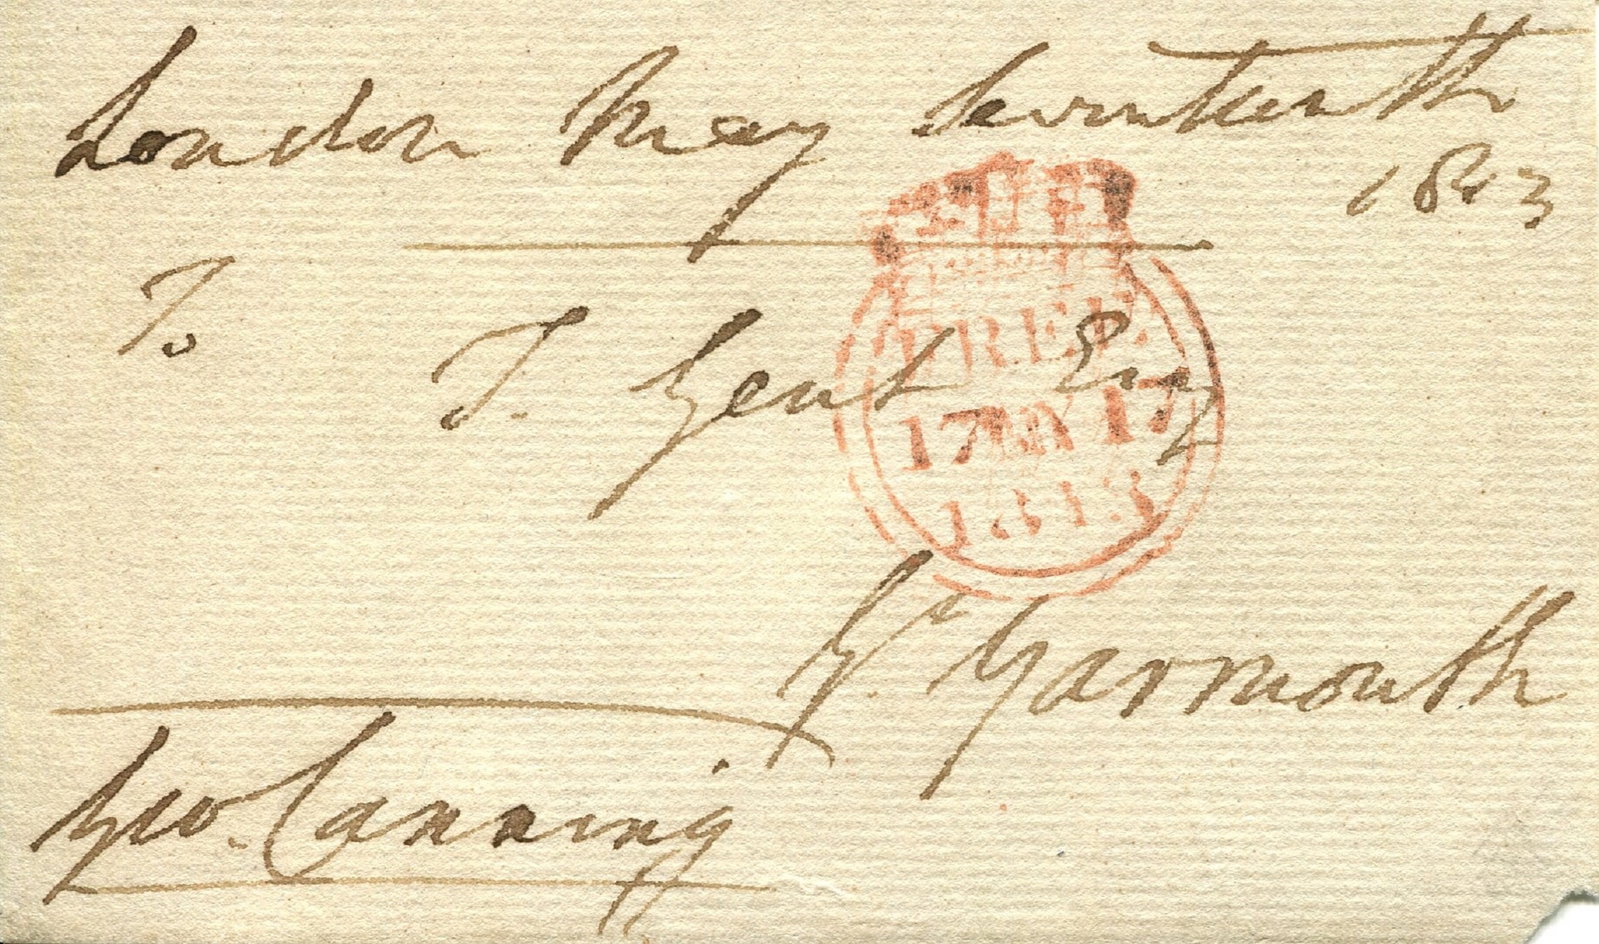 London May Seventeenth
1813
To
T. Gent Esq
FREE
17 MY 17
1813
Gt. Yarmouth
Geo. Canning